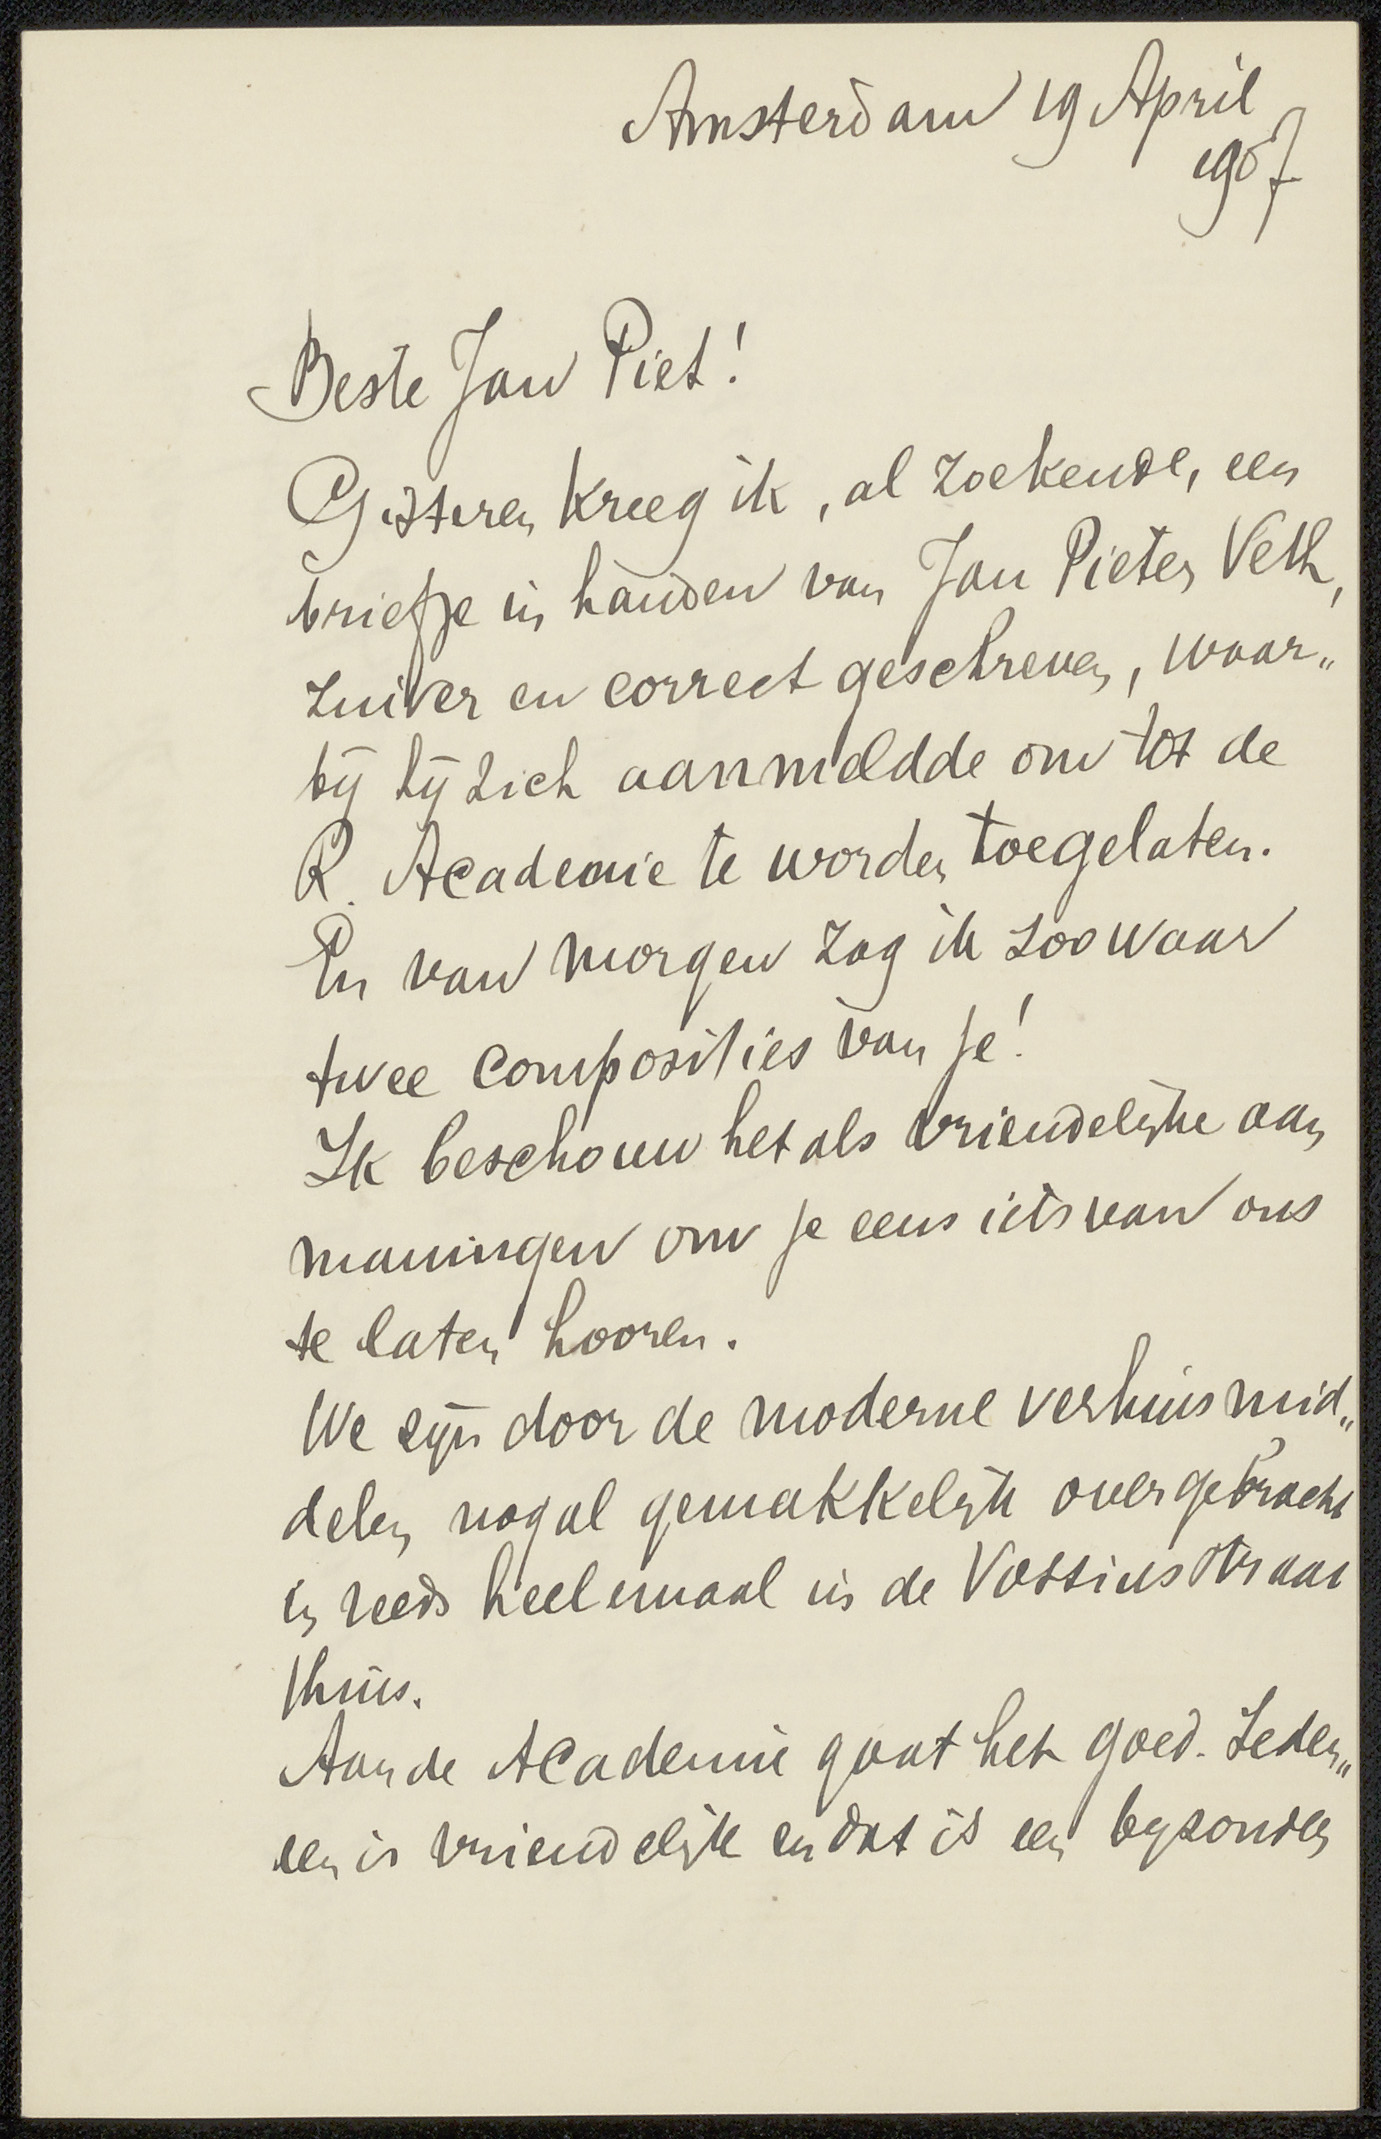 Amsterdam 19 April
1907
Beste Jan Piet!
Gisteren kreeg ik, al zoekende, een
briefje in handen van Jan Pieter Veth,
zuiver en correct geschreven, waar„
bij hij zich aanmeldde om tot de
R. Academie te worden toegelaten.
En van morgen zag ik zoowaar
twee composities van je!
Ik beschouw het als vriendelijke aan
maningen om je eens iets van ons
te laten hooren.
We zijn door de moderne verhuismid„
delen nogal gemakkelijk overgebracht
en reeds heelemaal in de Vossiusstraat
thuis.
Aan de Academie gaat het goed. Ieder„
een is vriendelijk en dat is een byzonder